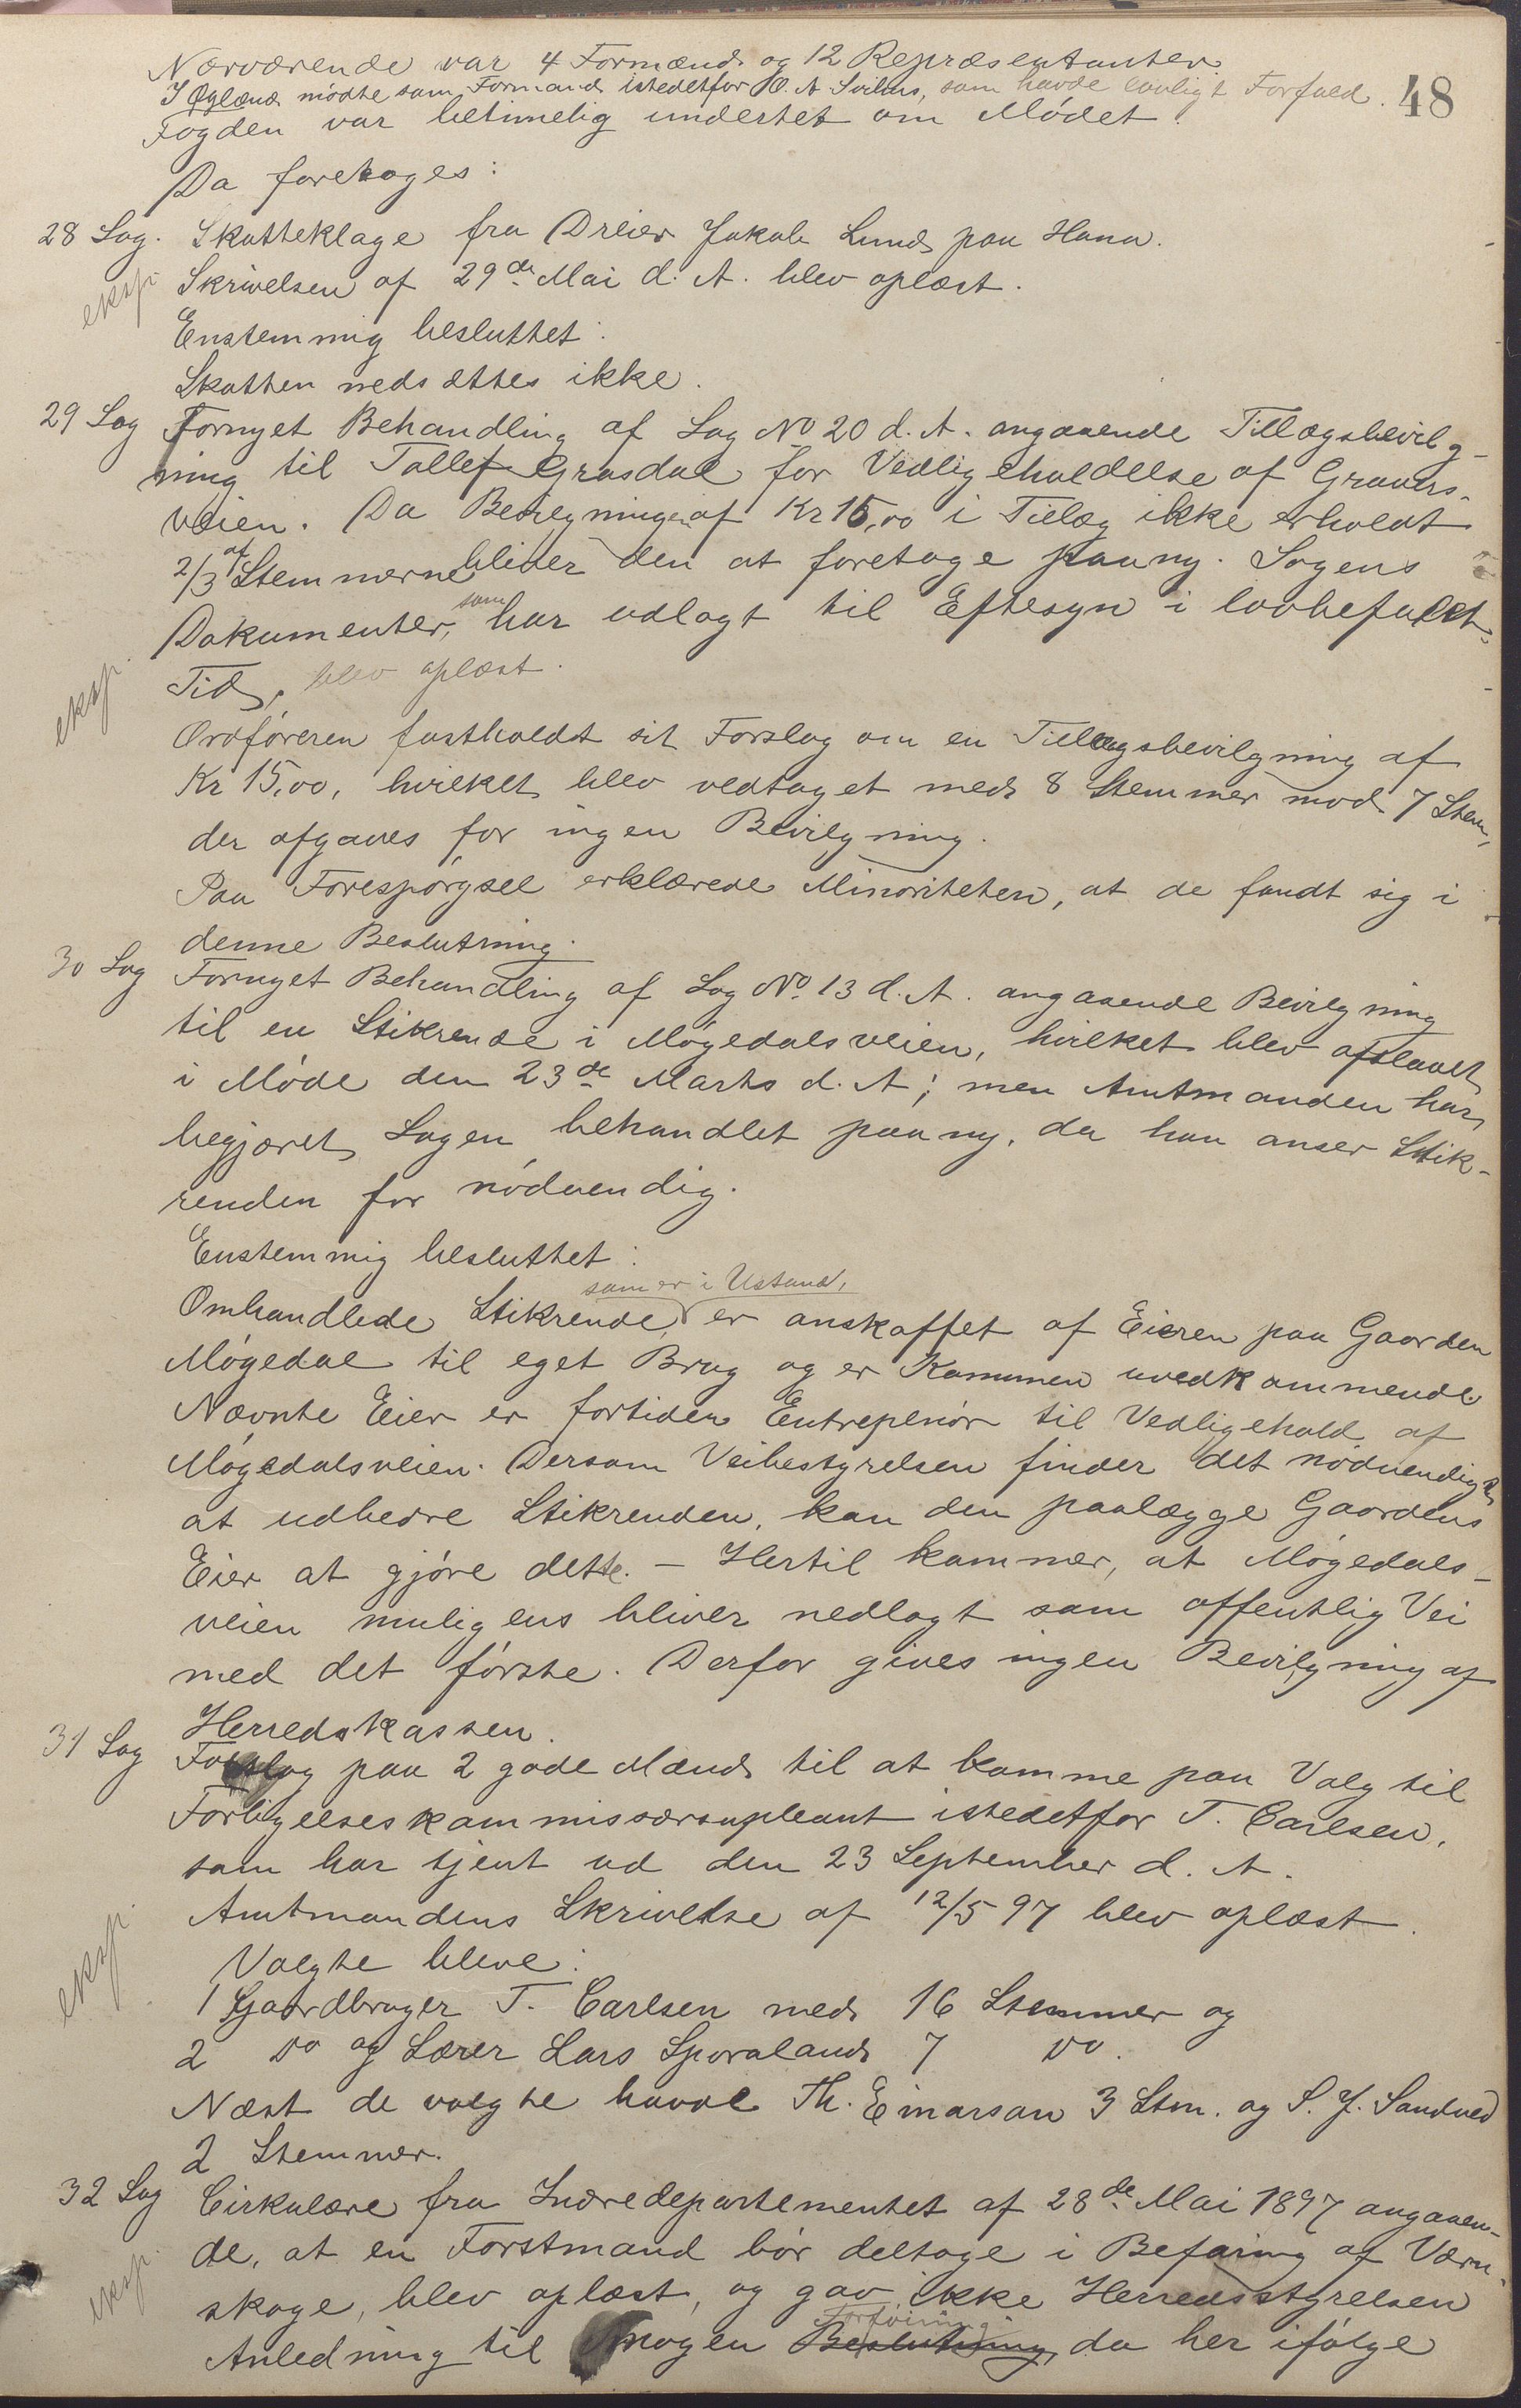 Nærværende var 4 Formænd og 12 Repræsentanter.
I Øglænd mødte som Formand istedetfor O. A. , som havde lovligt Forfald. 48
Fogden var betimelig underrettet om Mødet.
Da foretoges:
28 Sag. Skatteklage fra Dreier Jakob Lund paa Hana.
eksp. Skrivelsen af 29de Mai d. A. blev oplæst.
Enstemmig besluttet:
Skatten nedsættes ikke.
29 Sag Fornyet Behandling af Sag No 20 d. A. angaaende Tillægsbevilg-
ning til Tallef Grasdal for Vedligeholdelse af Gravars-
veien. Da Bevilgningen af Kr 15,00 i Tillæg ikke erholdt
2/3 af Stemmerne bliver den at foretage paany. Sagens
Dokumenter, som har udlagt til Eftesyn i lovbefalet
Tid, blev oplæst.
eksp.
Ordføreren fastholdt sit Forslag om en Tillægsbevilgning af
Kr 15,00, hvilket blev vedtaget med 8 Stemmer mod 7 Stem,
der afgaves for ingen Bevilgning.
Paa Forespørgsel erklærede Minoriteten, at de fandt sig i
denne Beslutning.
30 Sag Fornyet Behandling af Sag No. 13 d. A. angaaende Bevilgning
til en Stikrende i Møgedalsveien, hvilket blev afslaaet
i Møde den 23de Marts d. A; men Amtmanden har
begjæret Sagen behandlet paany, da han anser Stik-
renden for nødvendig.
Enstemmig besluttet:
Omhandlede Stikrende, som er i Ustand, er anskaffet af Eieren paa Gaarden
Møgedal til eget Brug og er Kommunen uvedkommende
Nævnte Eier er fortiden Entreplnør til Vedligehold af
Møgedalsveien. Dersom Veibestyrelsen finder det nødvendigt
at udbedre Stikrenden, kan den paalægge Gaardens
Eier at gjøre dette. – Hertil kommer, at Møgedals-
veien muligens bliver nedlagt som offentlig Vei
med det første. Derfor gives ingen Bevilgning af
Herredskassen.
31 Sag Forslag paa 2 gode Mænd til at komme paa Valg til
Forligelseskommissærsupleant istedetfor T. Carlsen,
som har tjent ud den 23 September d. A.
Amtmandens Skrivelse af 12/5 97 blev oplæst.
eksp. Valgte bleve:
1 Gaardbruger T. Carlsen med 16 Stemmer og
2 Do og Lærer Lars Sporaland 7 Do.
Næst de valgte havde Th. Einarson 3 Stm. og S. J. Sandved
2 Stemmer.
32 Sag Cirkulære fra Indredepartementet af 28de Mai 1897 angaaen-
de, at en Forstmand bør deltage i Befaring af Værn-
eksp. skoge, blev oplæst, og gav ikke Herredsstyrelsen
Anledning til nogen Beslutning Forføining, da her ifølge